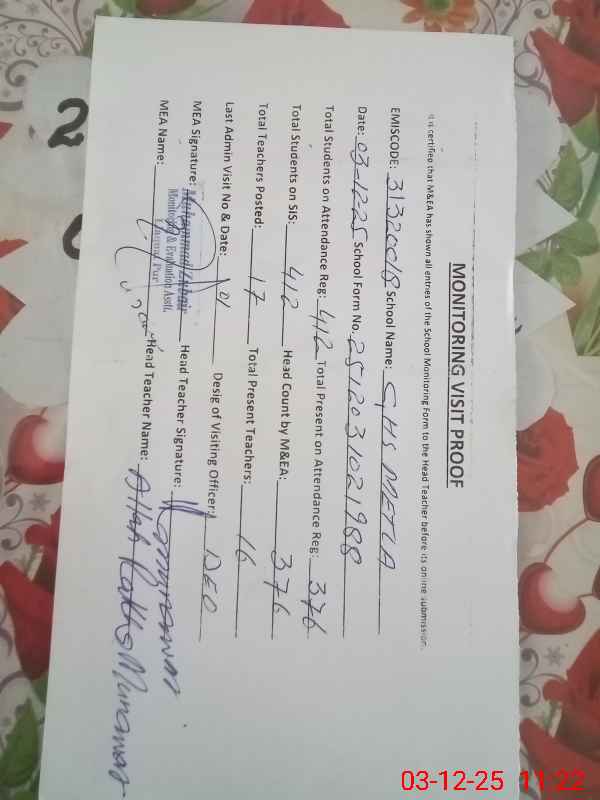 MONITORING VISIT PROOF
It is certified that M&EA has shown all entries of the School Monitoring Form to the Head Teacher before its online submission.
EMISCODE: 31320018 School Name: GHS METLA
Date: 03-12-25 School Form No. 2512031021988
Total Students on Attendance Reg: 412 Total Present on Attendance Reg: 376
Total Students on SIS: 412 Head Count by M&EA: 376
Total Teachers Posted: 17 Total Present Teachers: 16
Last Admin Visit No & Date: 01 Desig of Visiting Officer: DEO
MEA Signature: Head Teacher Signature:
Muhammad Zubair
Monitoring & Evaluation Asstt.
MEA Name: Head Teacher Name: Allah Rakha Munawar
03-12-25 11:22